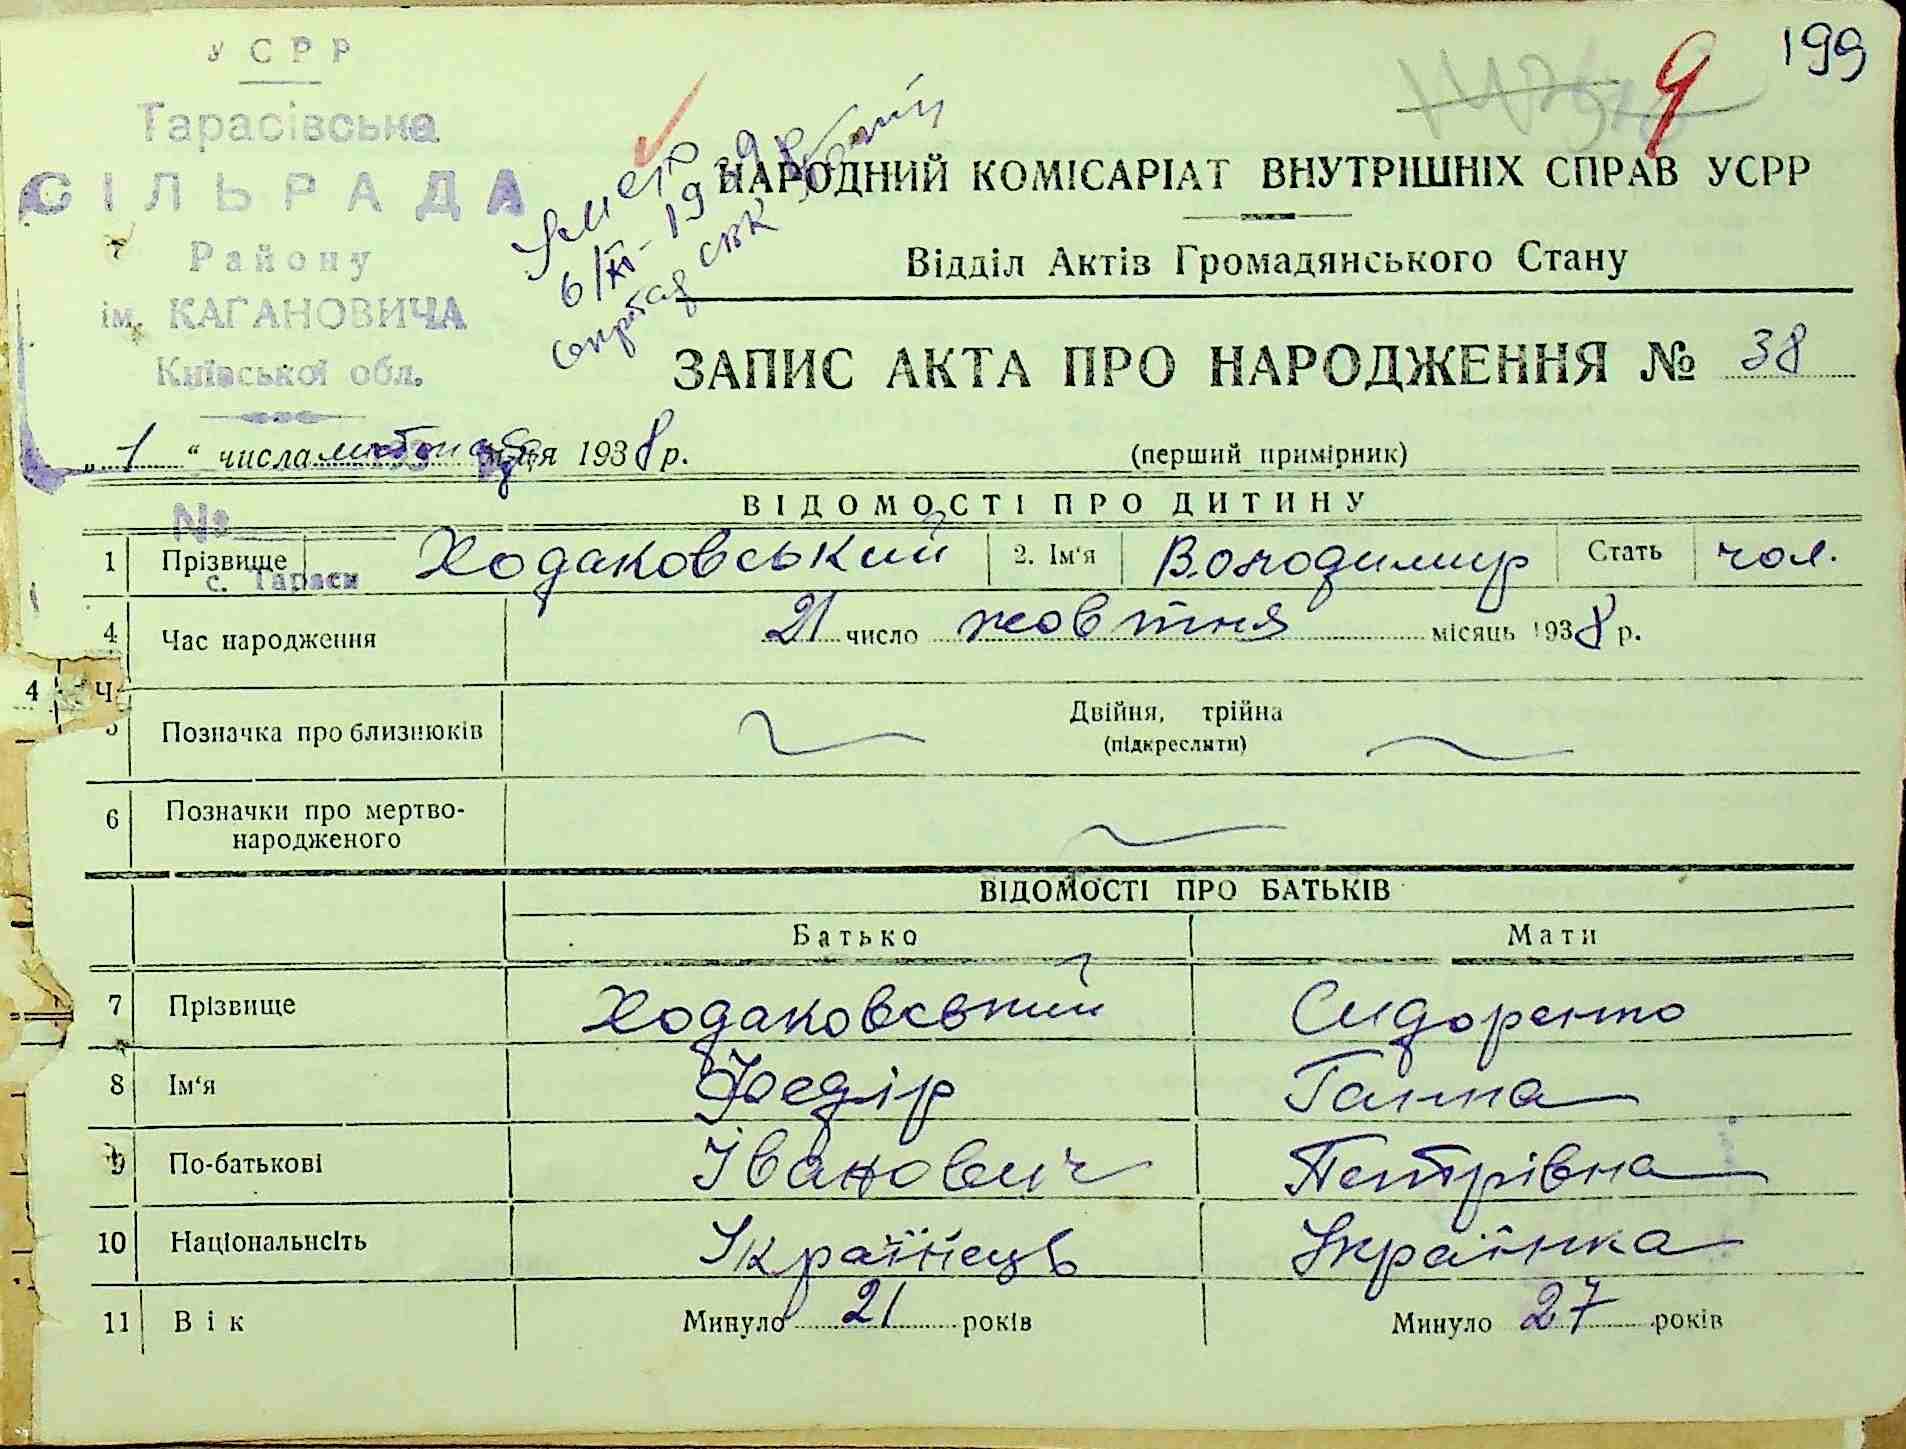 199
9
УСРР
Тарасівська
СІЛЬРАДА
Району
ім. КАГАНОВИЧА
Київської обл.
№
с. Тараси
Умер
6/XI - 1939
секретар СВК
НАРОДНИЙ КОМІСАРІАТ ВНУТРІШНІХ СПРАВ УСРР
Відділ Актів Громадянського Стану
ЗАПИС АКТА ПРО НАРОДЖЕННЯ № 38
„1“ числа листопада м-ця 1938 р. (перший примірник)
ВІДОМОСТІ ПРО ДИТИНУ
1 Прізвище Ходаковський 2. Ім'я Володимир Стать чол.
4 Час народження 21 число жовтня місяць 1938 р.
4 Ч
5 Позначка про близнюків Двійня, трійна
(підкреслити)
6 Позначки про мертво-
народженого
ВІДОМОСТІ ПРО БАТЬКІВ
Батько Мати
7 Прізвище Ходаковський Сидоренко
8 Ім'я Федір Ганна
9 По-батькові Іванович Петрівна
10 Національнсіть Українець Українка
11 Вік Минуло 21 років Минуло 27 років